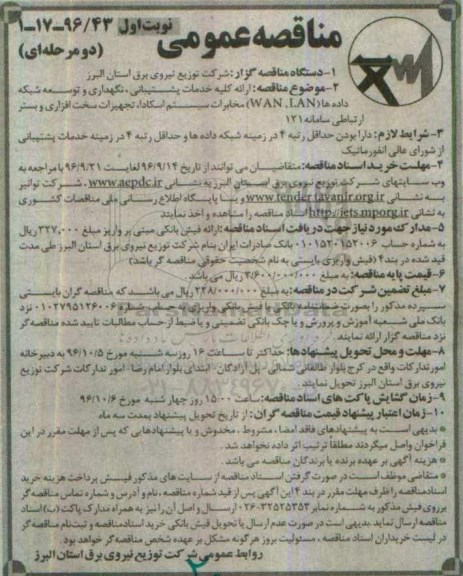 نوبت اول ۹۶/۴۳-۱۷-۱
مناقصه عمومی
(دو مرحله‌ای)
۱-دستگاه مناقصه گزار: شرکت توزیع نیروی برق استان البرز
۲-موضوع مناقصه: ارائه کلیه خدمات پشتیبانی، نگهداری و توسعه شبکه
داده ها (WAN ,LAN) مخابرات سیستم اسکادا، تجهیزات سخت افزاری و بستر
ارتباطی سامانه ۱۲۱
۳- شرایط لازم: دارا بودن حداقل رتبه ۴ در زمینه شبکه داده ها و حداقل رتبه ۴ در زمینه خدمات پشتیبانی
از شورای عالی انفورماتیک
۴-مهلت خرید اسناد مناقصه: متقاضیان می توانند از تاریخ ۹۶/۹/۱۴ لغایت ۹۶/۹/۲۱ با مراجعه به
وب سایتهای شرکت توزیع نیروی برق استان البرز به نشانی www.aepdc.ir، شرکت توانیر
به نشانی www.tender.tavanir.org.ir و یا پایگاه اطلاع رسانی ملی مناقصات کشوری
به نشانی http://iets.mporg.ir اسناد مناقصه را مشاهده و اخذ نمایند
۵-مدارک مورد نیاز جهت دریافت اسناد مناقصه: ارائه فیش بانکی مبنی بر واریز مبلغ ۳۲۷,۰۰۰ ریال
به شماره حساب ۰۱۰۱۵۲۰۱۵۲۰۰۶ بانک صادرات ایران بنام شرکت توزیع نیروی برق استان البرز طی مدت
قید شده در بند ۴ (فیش واریزی بایستی به نام شخصیت حقوقی مناقصه گر باشد)
۶-قیمت پایه مناقصه: به مبلغ ۳/۶۰۰/۰۰۰/۰۰۰ ریال می باشد.
۷-مبلغ تضمین شرکت در مناقصه: به مبلغ ۲۲۸/۰۰۰/۰۰۰ ریال می باشد که مناقصه گران بایستی
سپرده مذکور را بصورت ضمانتنامه بانکی یا فیش بانکی واریزی به حساب شماره ۰۱۰۲۷۹۵۱۲۶۰۰۶ نزد
بانک ملی شعبه آموزش و پرورش و یا چک بانکی تضمینی و یا ضبط از حساب مطالبات تایید شده مناقصه گر
نزد مناقصه گزار ارائه نمایند.
۸-مهلت و محل تحویل پیشنهادها: حداکثر تا ساعت ۱۶ روز سه شنبه مورخ ۹۶/۱۰/۵ به دبیرخانه
امور تدارکات واقع در کرج بلوار طالقانی شمالی - پل آزادگان - ابتدای بلوار امام رضا - امور تدارکات شرکت توزیع
نیروی برق استان البرز تحویل نمایند.
۹-زمان گشایش پاکت های اسناد مناقصه: ساعت ۱۵:۰۰ روز چهار شنبه مورخ ۹۶/۱۰/۶
۱۰-زمان اعتبار پیشنهاد قیمت مناقصه گران: از تاریخ تحویل پیشنهاد بمدت سه ماه
* بدیهی است به پیشنهادهای فاقد امضا، مشروط، مخدوش و یا پیشنهادهایی که پس از مهلت مقرر در این
فراخوان واصل میگردند مطلقا ترتیب اثر داده نخواهد شد.
* هزینه آگهی بر عهده برنده یا برندگان مناقصه می باشد.
* متقاضی موظف است در صورت گرفتن اسناد مناقصه از سایت های مذکور فیش پرداخت هزینه خرید
اسناد مناقصه را ظرف مهلت مقرر در بند ۴ این آگهی پس از قید شماره مناقصه، نام و آدرس و شماره تماس مناقصه گر
بر روی فیش مذکور به شماره نمابر ۳۲۵۲۵۳۵۳-۰۲۶ ارسال و اصل آن را نیز به همراه مدارک پاکت (ب) اسناد
مناقصه ارسال نماید. بدیهی است در صورت عدم ارسال یا تحویل فیش بانکی خرید اسناد مناقصه و ثبت نام مناقصه گر
در لیست خریداران اسناد مناقصه، مسئولیت بروز هر گونه مشکل بر عهده شخص مناقصه گر خواهد بود.
روابط عمومی شرکت توزیع نیروی برق استان البرز